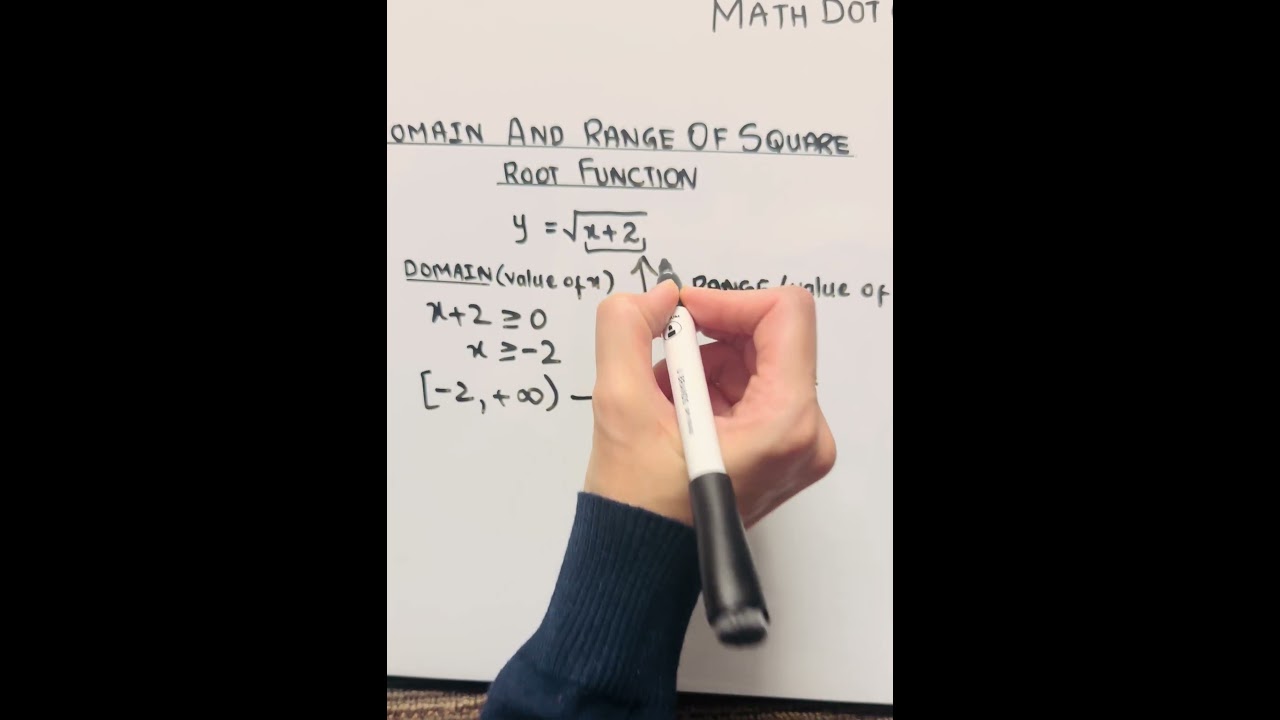 MATH DOT
OMAIN AND RANGE OF SQUARE
ROOT FUNCTION
y = √x+2
DOMAIN (value of x)
RANGE (value of
x+2 ≥ 0
x ≥ -2
[-2, +∞) –